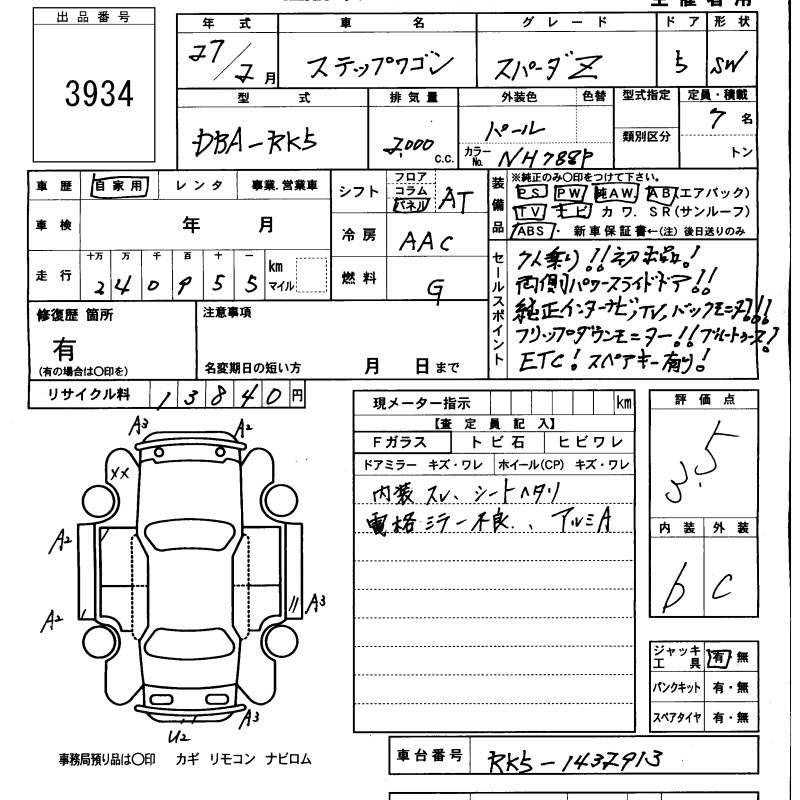 出品番号
3934
年式 車名 グレード ドア 形状
27/2月 ステップワゴン スパーダZ 5 SW
型式 排気量 外装色 色替 型式指定 定員・積載
DBA-RK5 2,000 c.c. パール カラーNo. NH788P 類別区分 7名 トン
車歴 自家用 レンタ 事業.営業車
車検 年 月
走行 十万 万 千 百 十 一 km マイル
2 4 0 9 5 5
シフト フロア コラム パネル AT
冷房 AAC
燃料 G
装備品
※純正のみ〇印をつけて下さい。
PS PW 純AW AB(エアバック)
TV ナビ カワ. SR(サンルーフ)
ABS・ 新車保証書←(注) 後日送りのみ
セールスポイント
7人乗り!!初出品!
両側パワースライドドア!!
純正インターナビ,TV,バックモニタ!!!
フリップダウンモニター!!ブルートゥース!
ETC!スペアキー有り!
修復歴 箇所
有
(有の場合は〇印を)
注意事項
名変期日の短い方 月 日まで
リサイクル料 13840円
現メーター指示 km
【査定員記入】
Fガラス トビ石 ヒビワレ
ドアミラー キズ・ワレ ホイール(CP) キズ・ワレ
内装スレ、シートヘタリ
電格ミラー不良、アルミA
評価点
3.5
内装 外装
b C
ジャッキ工具 有・無
パンクキット 有・無
スペアタイヤ 有・無
A3 A2
XX
A2
A2 A3
U2 A3
事務局預り品は〇印 カギ リモコン ナビロム
車台番号 RK5-1437913